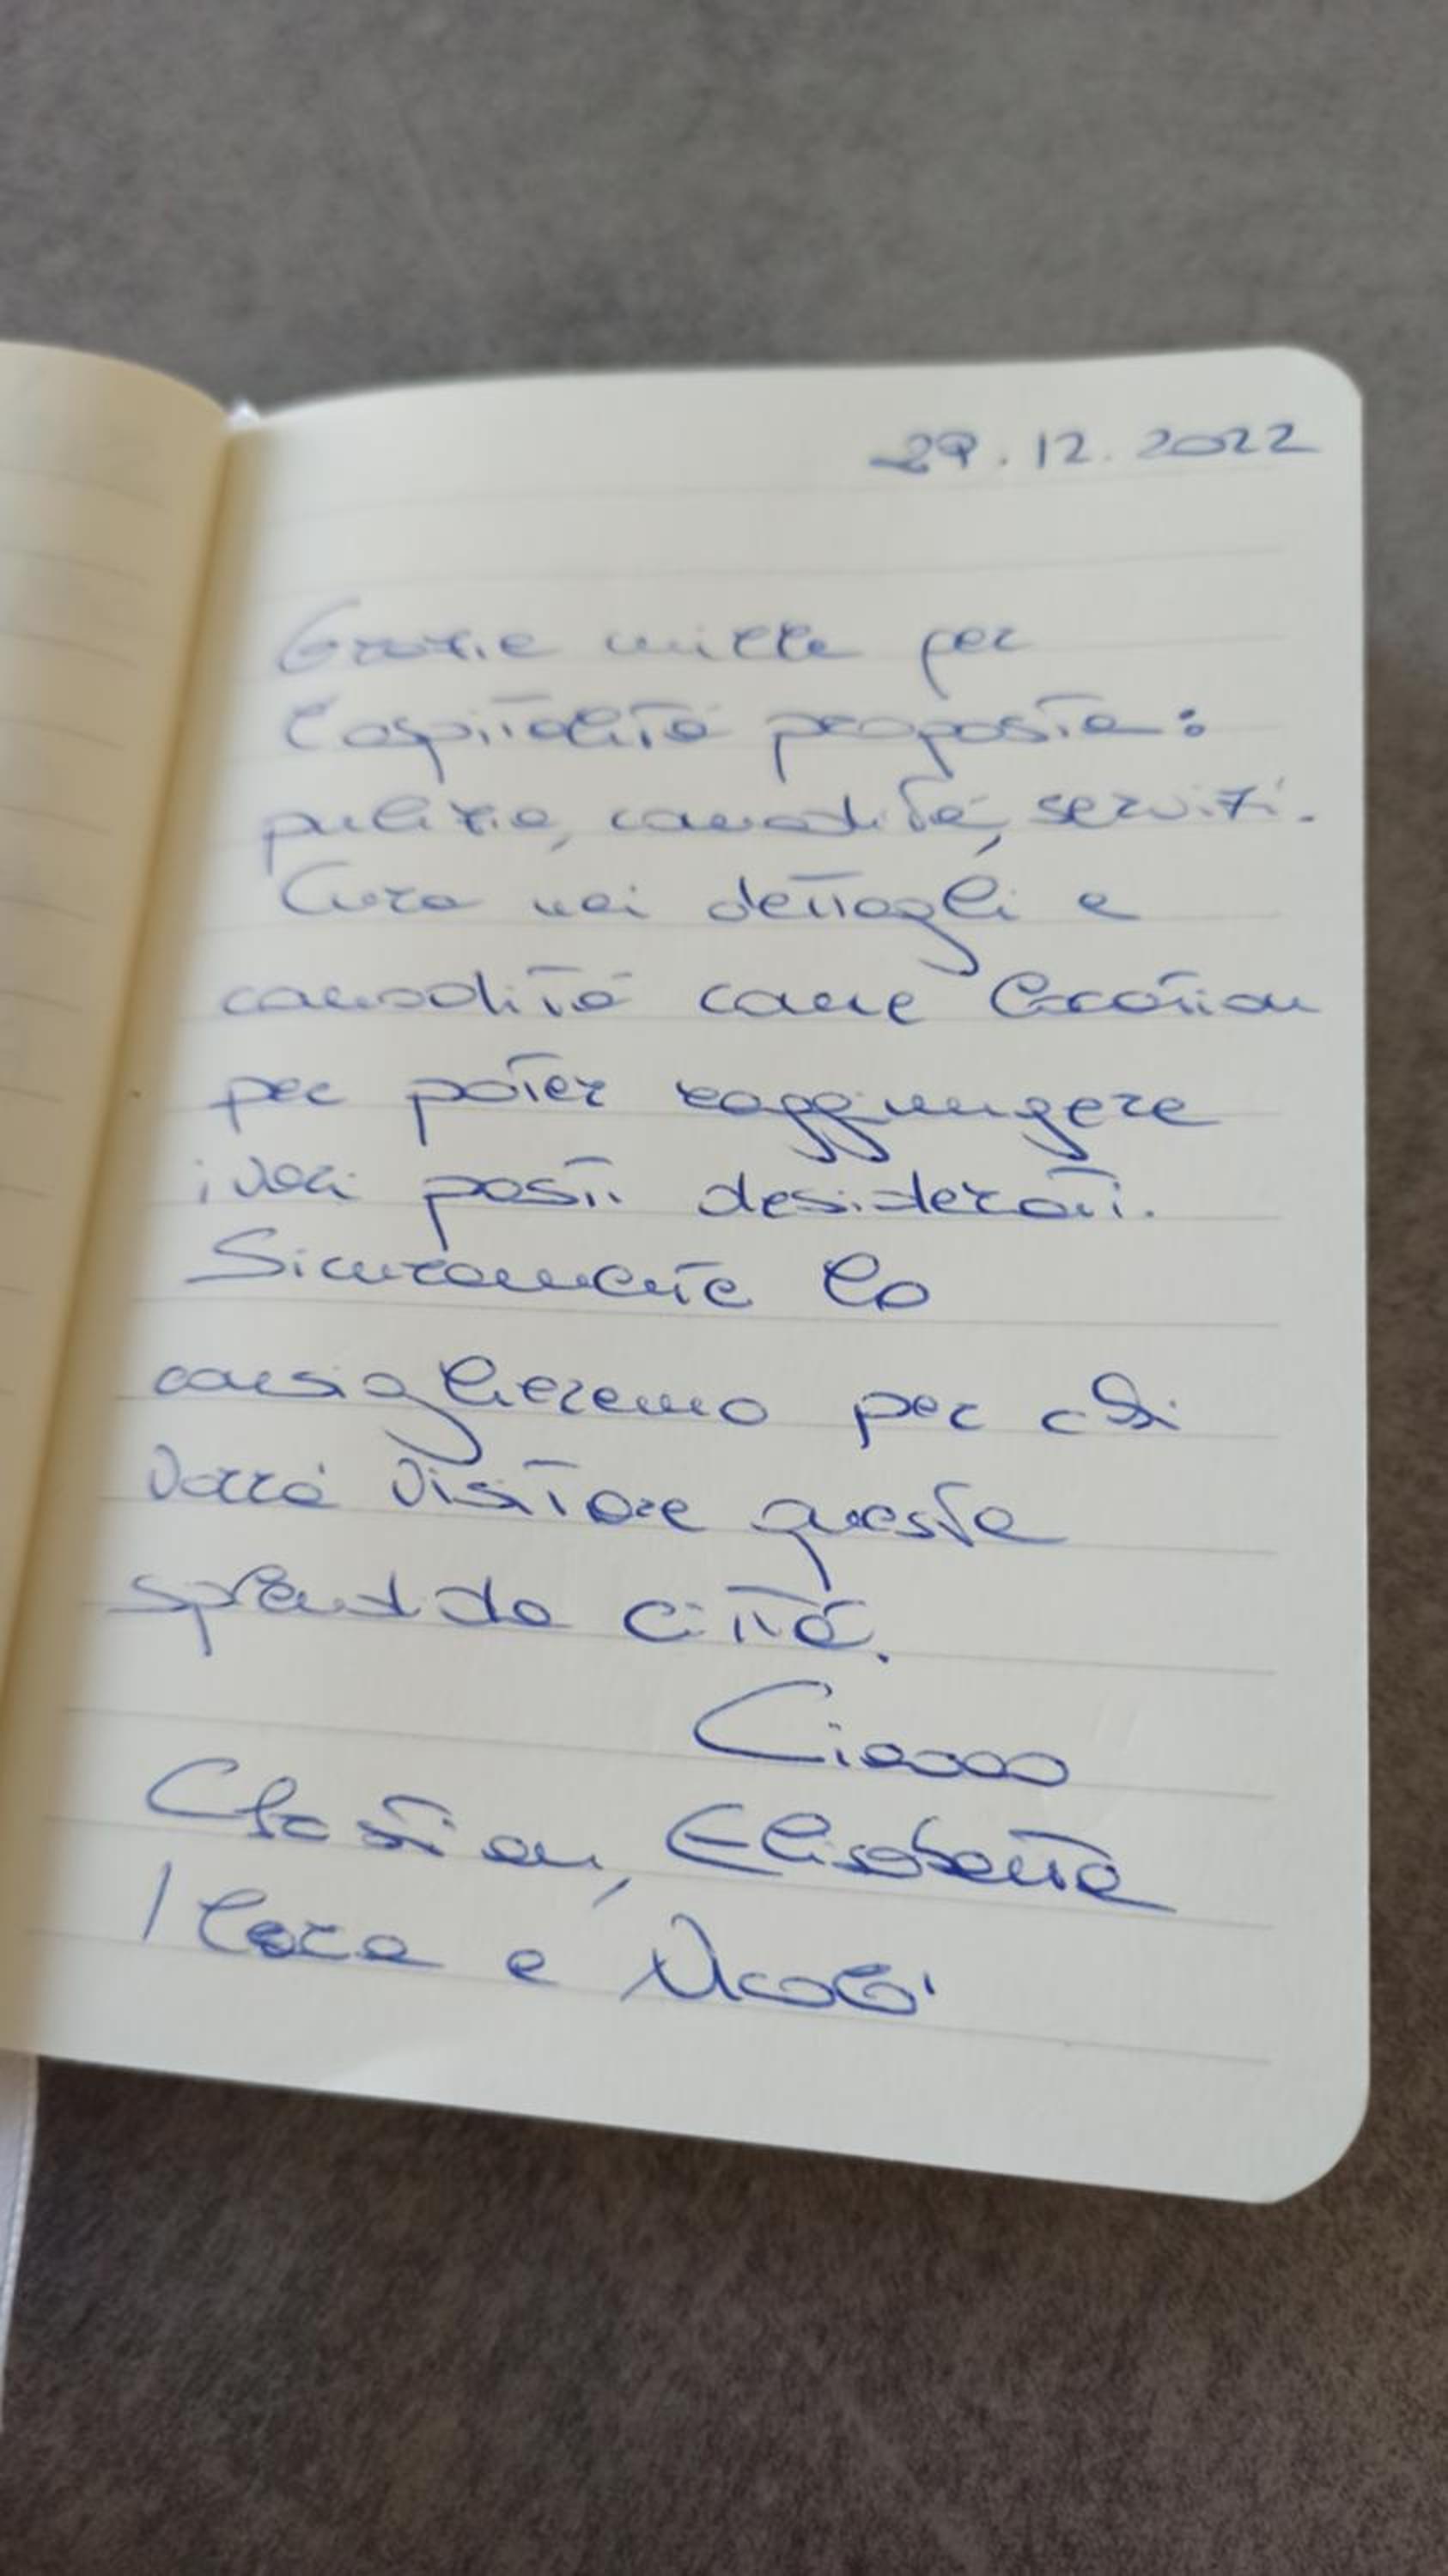 29.12.2022
Grazie mille per
l'ospitalità proposta:
pulizia, comodità, servizi.
Cura nei dettagli e
comodità come location
per poter raggiungere
i vari posti desiderati.
Sicuramente lo
consiglieremo per chi
vorrà visitare questa
splendida città.
Ciaooo
Elisabetta
Ilara e Nicolò